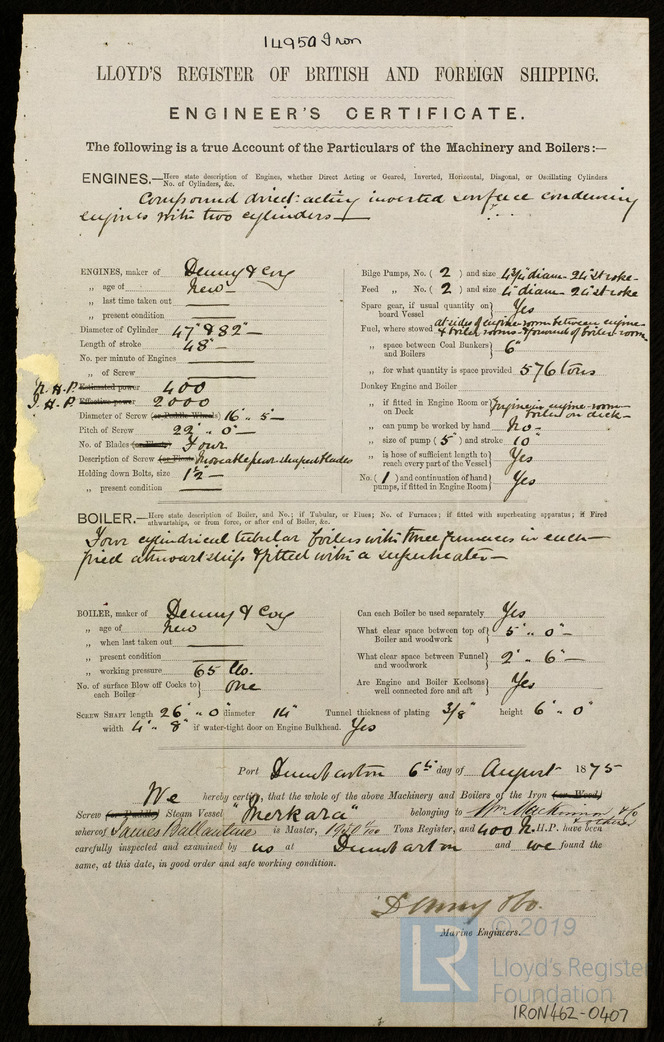 14950 Iron
LLOYD'S REGISTER OF BRITISH AND FOREIGN SHIPPING.
ENGINEER'S CERTIFICATE.
The following is a true Account of the Particulars of the Machinery and Boilers:—
ENGINES.—Here state description of Engines, whether Direct Acting or Geared, Inverted, Horizontal, Diagonal, or Oscillating Cylinders
No. of Cylinders, &c.
Compound direct acting inverted surface condensing
engines with two cylinders —
ENGINES, maker of Denny & Coy
„ age of New
„ last time taken out —
„ present condition —
Diameter of Cylinder 47" & 82" —
Length of stroke 48" —
No. per minute of Engines —
„ of Screw —
N.H.P. Estimated power 400
I.H.P. Effective power 2000
Diameter of Screw (or Paddle Wheels) 16 " 5 " —
Pitch of Screw 22' " 0" —
No. of Blades (or Floats) Four
Description of Screw (or Floats) Moveable pear-shaped blades
Holding down Bolts, size 1½" —
„ present condition —
Bilge Pumps, No. ( 2 ) and size 4¾" diam - 24" stroke -
Feed „ No. ( 2 ) and size 4" diam 24" stroke
Spare gear, if usual quantity on board Vessel } Yes
Fuel, where stowed at sides of engine-room between engine-
& boiler rooms & forward of boiler room
„ space between Coal Bunkers and Boilers } 6"
„ for what quantity is space provided 576 tons
Donkey Engine and Boiler
„ if fitted in Engine Room or on Deck } Engine in engine-room
boiler on deck -
„ can pump be worked by hand No -
„ size of pump ( 5" ) and stroke 10"
„ is hose of sufficient length to reach every part of the Vessel } Yes
No. ( 1 ) and continuation of hand pumps, if fitted in Engine Room } Yes
BOILER.—Here state description of Boiler, and No.; if Tubular, or Flues; No. of Furnaces; if fitted with superheating apparatus; if Fired
athwartships, or from force, or after end of Boiler, &c.
Four cylindrical tubular boilers with three furnaces in each
fired athwartship & fitted with a superheater —
BOILER, maker of Denny & Coy
„ age of New
„ when last taken out —
„ present condition —
„ working pressure 65 lbs.
No. of surface Blow off Cocks to each Boiler } One
Can each Boiler be used separately Yes
What clear space between top of Boiler and woodwork } 5' " 0" —
What clear space between Funnel and woodwork } 2' " 6" —
Are Engine and Boiler Keelsons well connected fore and aft } Yes
SCREW SHAFT length 26' " 0" diameter 14" Tunnel thickness of plating 3/8" height 6' " 0"
width 4' " 8" if water-tight door on Engine Bulkhead. Yes
Port Dumbarton 6th day of August 1875
We hereby certify, that the whole of the above Machinery and Boilers of the Iron (or Wood)
Screw (or Paddle) Steam Vessel "Merkara" belonging to Wm Mackinnon & Co
& others
whereof James Ballantine is Master, Tons Register, and 400 N.H.P. have been
carefully inspected and examined by us at Dumbarton and we found the
same, at this date, in good order and safe working condition.
Denny & Co.
Marine Engineers.
LR
© 2019
Lloyd's Register
Foundation
IRON462-0407